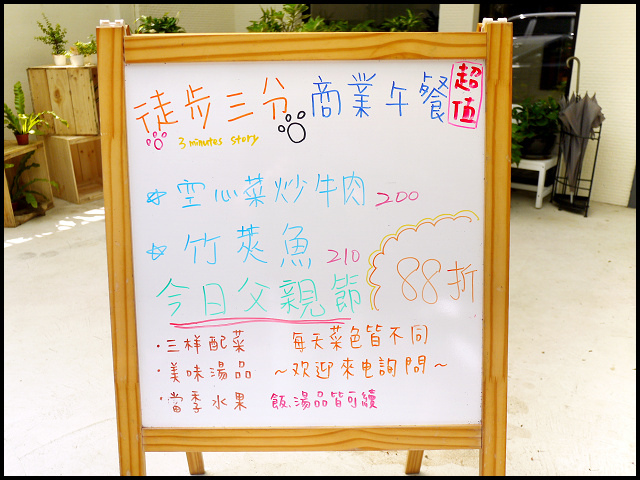 徒步三分 商業午餐 超值
3 minutes story
☆ 空心菜炒牛肉 200
☆ 竹莢魚 210
今日父親節 88折
·三样配菜 每天菜色皆不同
·美味湯品 ~欢迎來电詢問~
·當季水果 飯、湯品皆可續